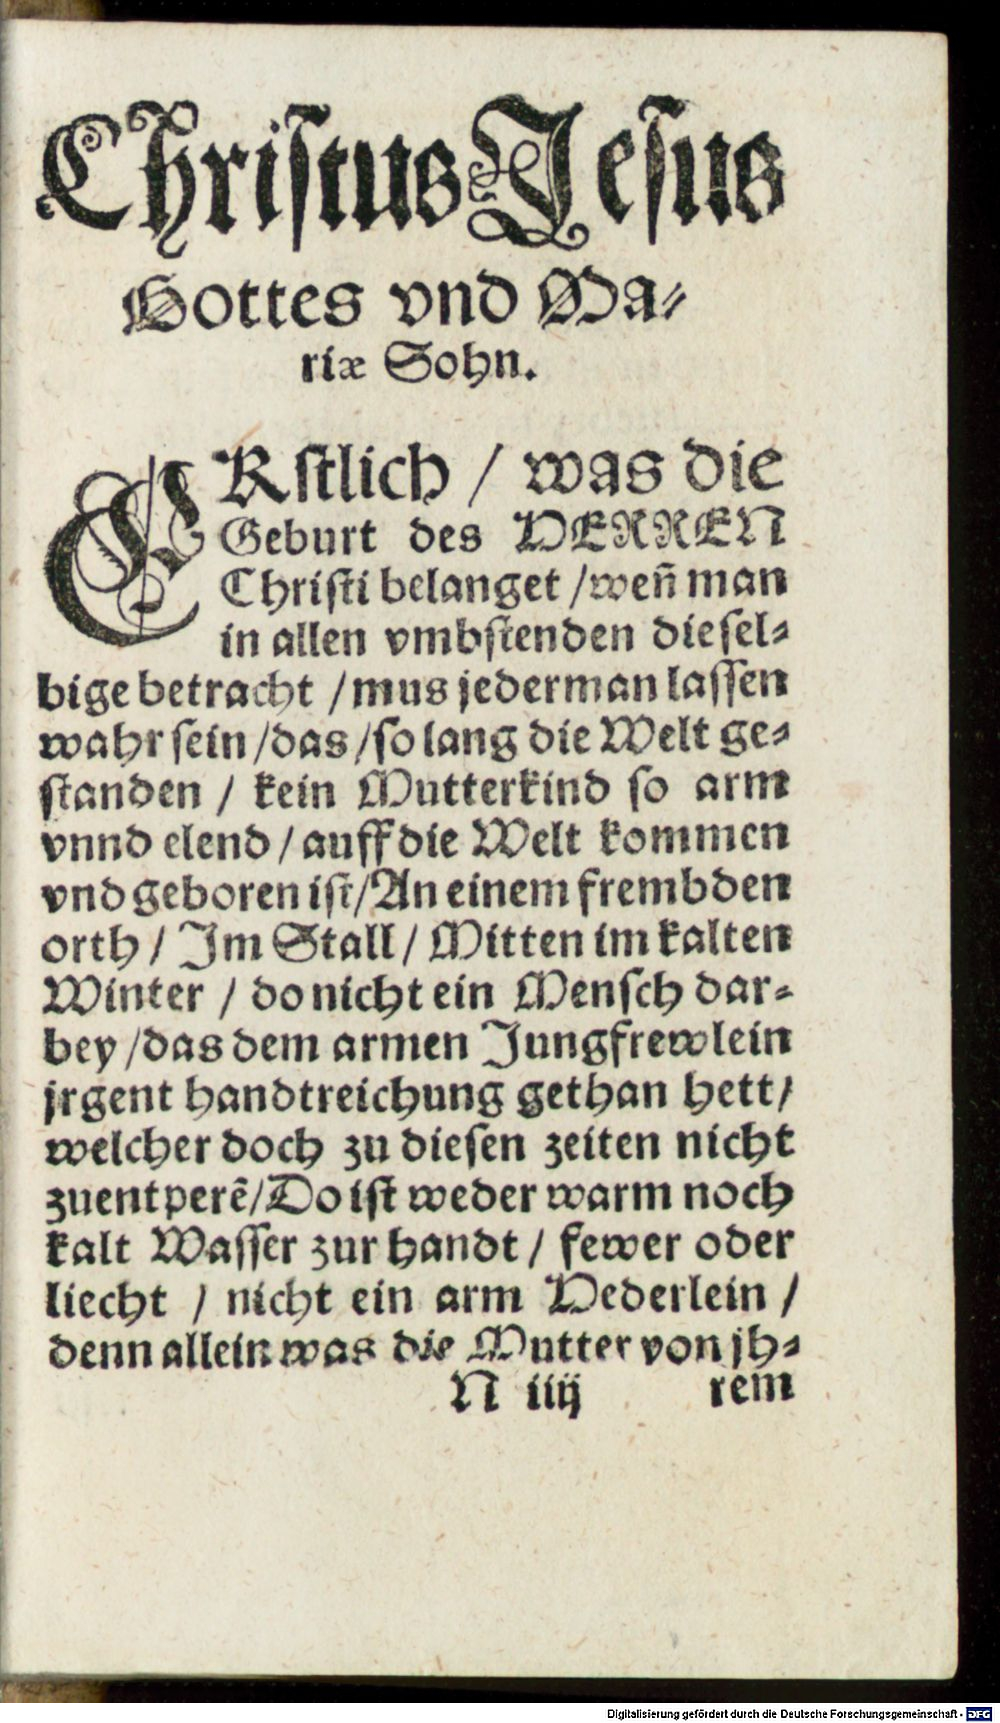 Christus Jesus
Gottes vnd Ma⸗
riæ Sohn.
ERstlich / was die
Geburt des HERREN
Christi belanget / weñ man
in allen vmbstenden diesel⸗
bige betracht / mus jederman lassen
wahr sein / das / so lang die Welt ge⸗
standen / kein Mutterkind so arm
vnnd elend / auff die Welt kommen
vnd geboren ist / An einem frembden
orth / Im Stall / Mitten im kalten
Winter / do nicht ein Mensch dar⸗
bey / das dem armen Jungfrewlein
jrgent handtreichung gethan hett /
welcher doch zu diesen zeiten nicht
zuentperẽ / Do ist weder warm noch
kalt Wasser zur handt / fewer oder
liecht / nicht ein arm Hederlein /
denn allein was die Mutter von jh⸗
N iiij rem
Digitalisierung gefördert durch die Deutsche Forschungsgemeinschaft - DFG